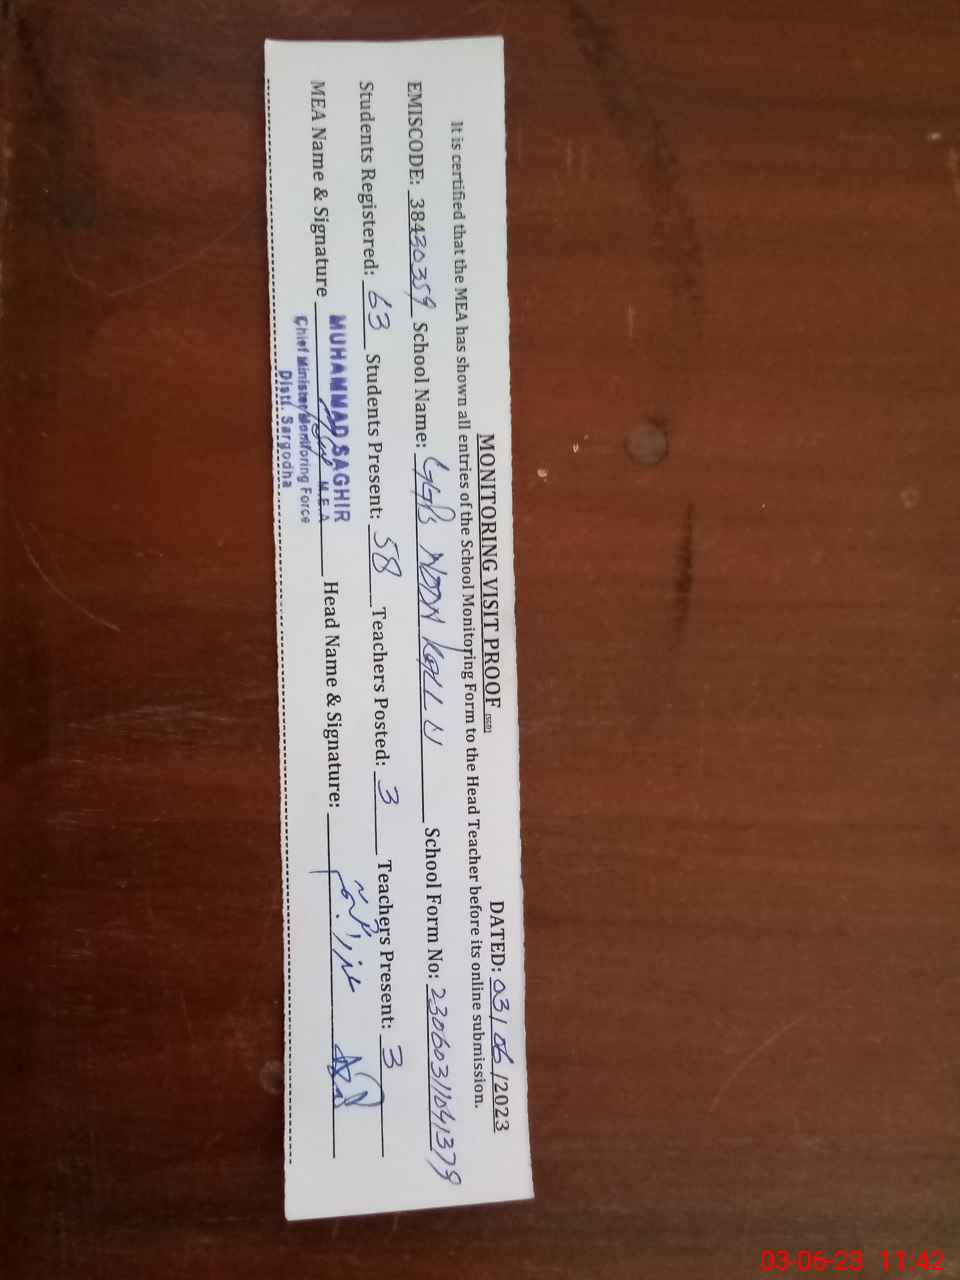 MONITORING VISIT PROOF (SED) DATED: 03/06/2023
It is certified that the MEA has shown all entries of the School Monitoring Form to the Head Teacher before its online submission.
EMISCODE: 38430359 School Name: GGPS School Form No:
Students Registered: 63 Students Present: 58 Teachers Posted: 3 Teachers Present: 3
MEA Name & Signature Head Name & Signature:
MUHAMMAD SAGHIR
M.E.A
Chief Minister Monitoring Force
Distt. Sargodha
03-06-23 11:42